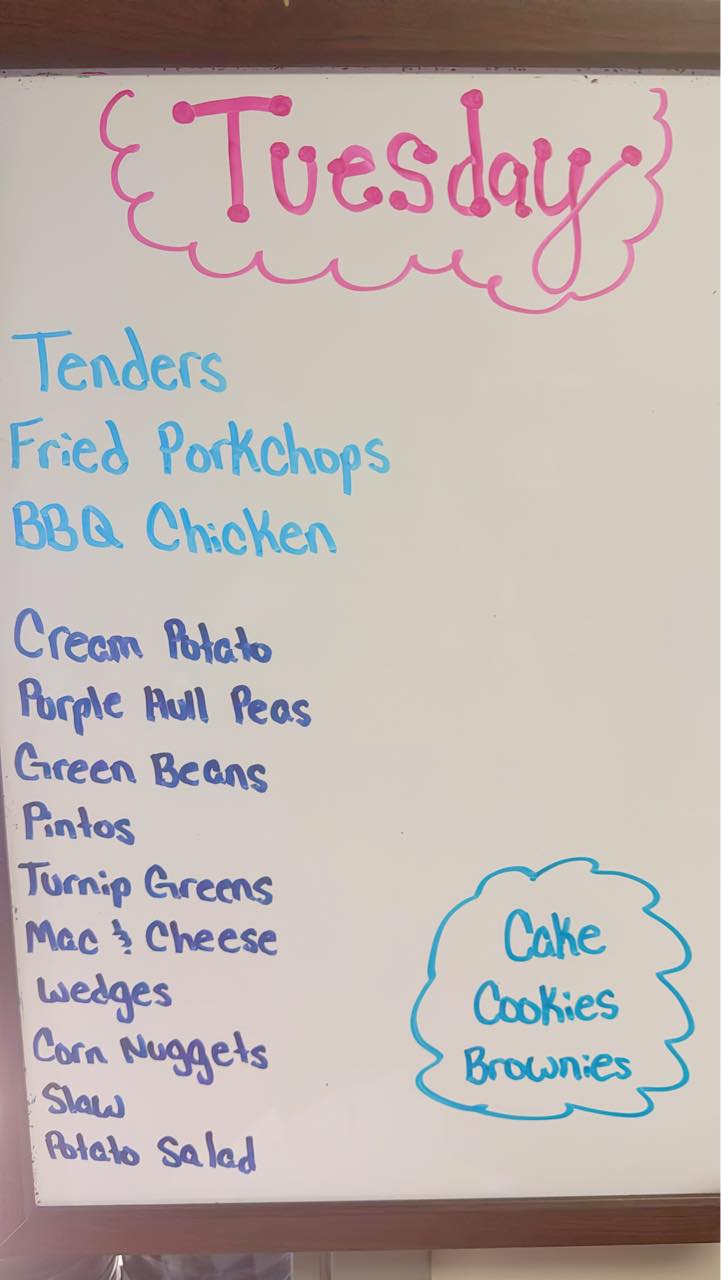 Tuesday
Tenders
Fried Porkchops
BBQ Chicken
Cream Potato
Purple Hull Peas
Green Beans
Pintos
Turnip Greens
Mac & Cheese
Wedges
Corn Nuggets
Slaw
Potato Salad
Cake
Cookies
Brownies